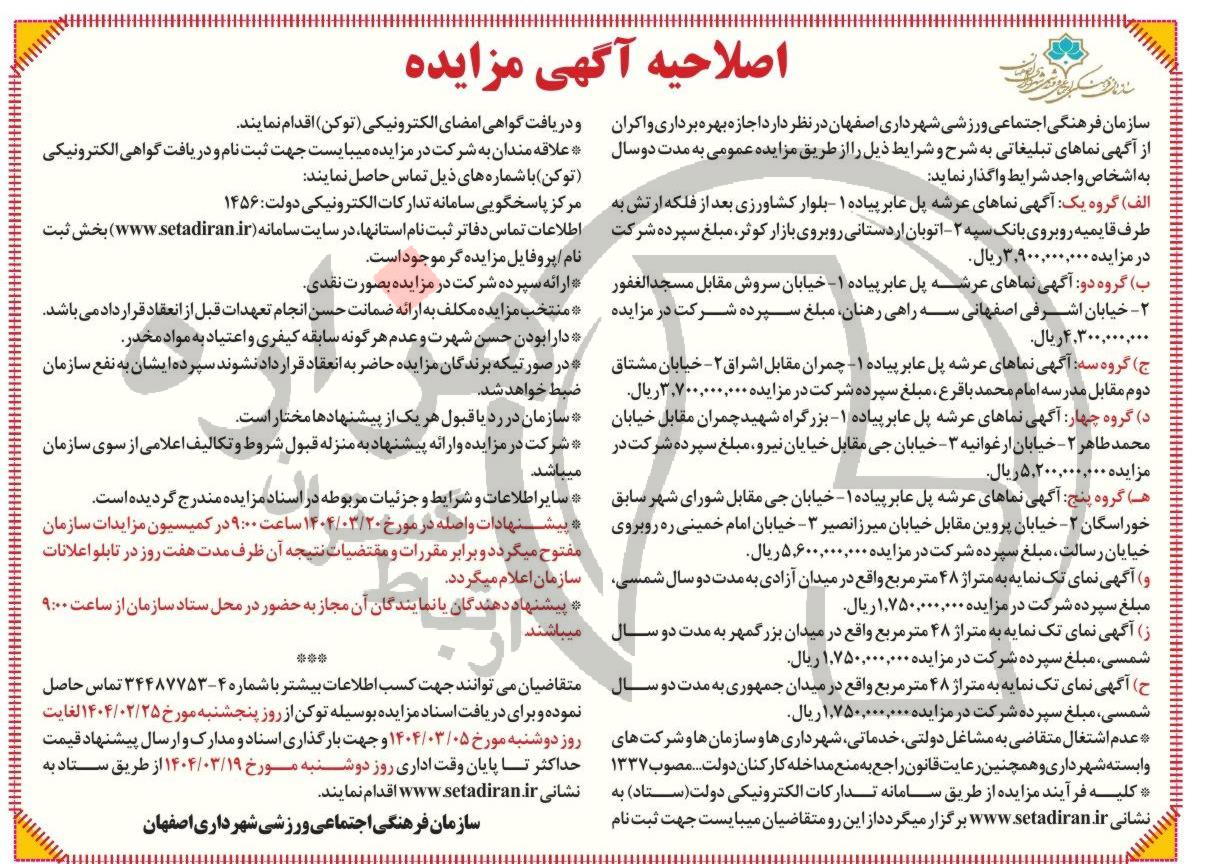 اصلاحیه آگهی مزایده
سازمان فرهنگی اجتماعی ورزشی شهرداری اصفهان در نظر دارد اجازه بهره برداری و اکران
از آگهی نماهای تبلیغاتی به شرح و شرایط ذیل را از طریق مزایده عمومی به مدت دو سال
به اشخاص واجد شرایط واگذار نماید:
الف) گروه یک: آگهی نماهای عرشه پل عابر پیاده ۱- بلوار کشاورزی بعد از فلکه ارتش به
طرف قایمیه روبروی بانک سپه ۲- اتوبان اردستانی روبروی بازار کوثر، مبلغ سپرده شرکت
در مزایده ۳,۹۰۰,۰۰۰,۰۰۰ ریال.
ب) گروه دو: آگهی نماهای عرشه پل عابر پیاده ۱- خیابان سروش مقابل مسجدالغفور
۲- خیابان اشرفی اصفهانی سه راهی رهنان، مبلغ سپرده شرکت در مزایده
۴,۳۰۰,۰۰۰,۰۰۰ ریال.
ج) گروه سه: آگهی نماهای عرشه پل عابر پیاده ۱- چمران مقابل اشراق ۲- خیابان مشتاق
دوم مقابل مدرسه امام محمد باقر ع، مبلغ سپرده شرکت در مزایده ۳,۷۰۰,۰۰۰,۰۰۰ ریال.
د) گروه چهار: آگهی نماهای عرشه پل عابر پیاده ۱- بزرگراه شهید چمران مقابل خیابان
محمد طاهر ۲- خیابان ارغوانیه ۳- خیابان جی مقابل خیابان نیرو، مبلغ سپرده شرکت در
مزایده ۵,۲۰۰,۰۰۰,۰۰۰ ریال.
هـ) گروه پنج: آگهی نماهای عرشه پل عابر پیاده ۱- خیابان جی مقابل شورای شهر سابق
خوراسگان ۲- خیابان پروین مقابل خیابان میرزا نصیر ۳- خیابان امام خمینی ره روبروی
خیابان رسالت، مبلغ سپرده شرکت در مزایده ۵,۶۰۰,۰۰۰,۰۰۰ ریال.
و) آگهی نمای تک نمایه به متراژ ۴۸ متر مربع واقع در میدان آزادی به مدت دو سال شمسی،
مبلغ سپرده شرکت در مزایده ۱,۷۵۰,۰۰۰,۰۰۰ ریال.
ز) آگهی نمای تک نمایه به متراژ ۴۸ متر مربع واقع در میدان بزرگمهر به مدت دو سال
شمسی، مبلغ سپرده شرکت در مزایده ۱,۷۵۰,۰۰۰,۰۰۰ ریال.
ح) آگهی نمای تک نمایه به متراژ ۴۸ متر مربع واقع در میدان جمهوری به مدت دو سال
شمسی، مبلغ سپرده شرکت در مزایده ۱,۷۵۰,۰۰۰,۰۰۰ ریال.
* عدم اشتغال متقاضی به مشاغل دولتی، خدماتی، شهرداری ها و سازمان ها و شرکت های
وابسته شهرداری و همچنین رعایت قانون راجع به منع مداخله کارکنان دولت... مصوب ۱۳۳۷
* کلیه فرآیند مزایده از طریق سامانه تدارکات الکترونیکی دولت (ستاد) به
نشانی www.setadiran.ir برگزار میگردد از این رو متقاضیان میبایست جهت ثبت نام
و دریافت گواهی امضای الکترونیکی (توکن) اقدام نمایند.
* علاقه مندان به شرکت در مزایده میبایست جهت ثبت نام و دریافت گواهی الکترونیکی
(توکن) با شماره های ذیل تماس حاصل نمایند:
مرکز پاسخگویی سامانه تدارکات الکترونیکی دولت: ۱۴۵۶
اطلاعات تماس دفاتر ثبت نام استانها، در سایت سامانه (www.setadiran.ir) بخش ثبت
نام/پروفایل مزایده گر موجود است.
* ارائه سپرده شرکت در مزایده بصورت نقدی.
* منتخب مزایده مکلف به ارائه ضمانت حسن انجام تعهدات قبل از انعقاد قرارداد می باشد.
* دارا بودن حسن شهرت و عدم هر گونه سابقه کیفری و اعتیاد به مواد مخدر.
* در صورتیکه برندگان مزایده حاضر به انعقاد قرارداد نشوند سپرده ایشان به نفع سازمان
ضبط خواهد شد.
* سازمان در رد یا قبول هر یک از پیشنهادها مختار است.
* شرکت در مزایده و ارائه پیشنهاد به منزله قبول شروط و تکالیف اعلامی از سوی سازمان
میباشد.
* سایر اطلاعات و شرایط و جزئیات مربوطه در اسناد مزایده مندرج گردیده است.
* پیشنهادات واصله در مورخ ۱۴۰۴/۰۳/۲۰ ساعت ۹:۰۰ در کمیسیون مزایدات سازمان
مفتوح میگردد و برابر مقررات و مقتضیات نتیجه آن ظرف مدت هفت روز در تابلو اعلانات
سازمان اعلام میگردد.
* پیشنهاد دهندگان یا نمایندگان آن مجاز به حضور در محل ستاد سازمان از ساعت ۹:۰۰
میباشند.
***
متقاضیان می توانند جهت کسب اطلاعات بیشتر با شماره ۴-۳۴۴۸۷۷۵۳ تماس حاصل
نموده و برای دریافت اسناد مزایده بوسیله توکن از روز پنجشنبه مورخ ۱۴۰۴/۰۲/۲۵ لغایت
روز دوشنبه مورخ ۱۴۰۴/۰۳/۰۵ و جهت بارگذاری اسناد و مدارک و ارسال پیشنهاد قیمت
حداکثر تا پایان وقت اداری روز دوشنبه مورخ ۱۴۰۴/۰۳/۱۹ از طریق ستاد به
نشانی www.setadiran.ir اقدام نمایند.
سازمان فرهنگی اجتماعی ورزشی شهرداری اصفهان
هزاره
گستران
ارتباط